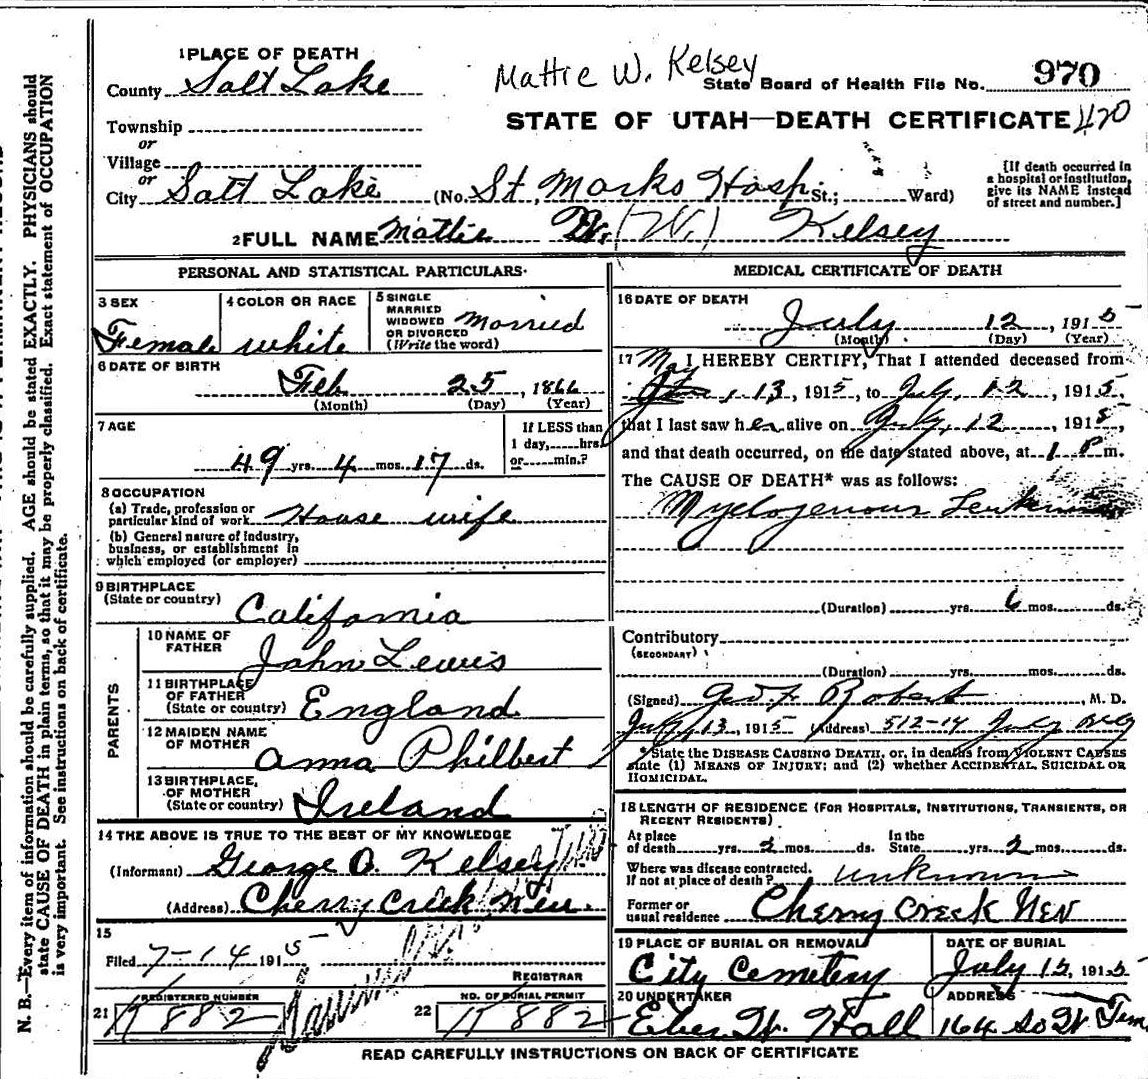 1 PLACE OF DEATH
County Salt Lake
Mattie W. Kelsey
State Board of Health File No. 970
Township
STATE OF UTAH—DEATH CERTIFICATE 420
or
Village
or
City Salt Lake (No. St. Marks Hosp St.; Ward)
[If death occurred in a hospital or institution, give its NAME instead of street and number.]
2 FULL NAME Mattie W. (W.) Kelsey
PERSONAL AND STATISTICAL PARTICULARS
3 SEX
Female
4 COLOR OR RACE
white
5 SINGLE
MARRIED
WIDOWED
OR DIVORCED
(Write the word)
Married
6 DATE OF BIRTH
Feb 25, 1866
(Month) (Day) (Year)
7 AGE
49 yrs. 4 mos. 17 ds.
If LESS than
1 day, hrs.
or min.?
8 OCCUPATION
(a) Trade, profession or
particular kind of work House wife
(b) General nature of industry,
business, or establishment in
which employed (or employer)
9 BIRTHPLACE
(State or country) California
PARENTS
10 NAME OF
FATHER John Lewis
11 BIRTHPLACE
OF FATHER
(State or country) England
12 MAIDEN NAME
OF MOTHER Anna Philbert
13 BIRTHPLACE
OF MOTHER
(State or country) Ireland
14 THE ABOVE IS TRUE TO THE BEST OF MY KNOWLEDGE
(Informant) George O. Kelsey
(Address) Cherry Creek Nev.
15
Filed 7-14 1915
REGISTRAR
21 REGISTERED NUMBER
K 882
22 NO. OF BURIAL PERMIT
K 882
MEDICAL CERTIFICATE OF DEATH
16 DATE OF DEATH
July 12, 1915
(Month) (Day) (Year)
17 I HEREBY CERTIFY, That I attended deceased from
May 13, 1915, to July 12, 1915,
that I last saw her alive on July 12, 1915,
and that death occurred, on the date stated above, at 1 P m.
The CAUSE OF DEATH* was as follows:
Myelogenous Leukemia
(Duration) yrs. 6 mos. ds.
Contributory
(SECONDARY)
(Duration) yrs. mos. ds.
(Signed) Geo. F. Robert M. D.
July 13, 1915 (Address) 512-14
*State the DISEASE CAUSING DEATH, or, in deaths from VIOLENT CAUSES
state (1) MEANS OF INJURY; and (2) whether ACCIDENTAL, SUICIDAL OR
HOMICIDAL.
18 LENGTH OF RESIDENCE (FOR HOSPITALS, INSTITUTIONS, TRANSIENTS, OR
RECENT RESIDENTS)
At place
of death yrs. 2 mos. ds.
In the
State yrs. 2 mos. ds.
Where was disease contracted,
If not at place of death? unknown
Former or
usual residence Cherry Creek Nev
19 PLACE OF BURIAL OR REMOVAL
City Cemetery
DATE OF BURIAL
July 15, 1915
20 UNDERTAKER
Eber W. Hall
ADDRESS
164 So W Tem
READ CAREFULLY INSTRUCTIONS ON BACK OF CERTIFICATE
N. B.—Every item of information should be carefully supplied. AGE should be stated EXACTLY. PHYSICIANS should
state CAUSE OF DEATH in plain terms, so that it may be properly classified. Exact statement of OCCUPATION
is very important. See instructions on back of certificate.